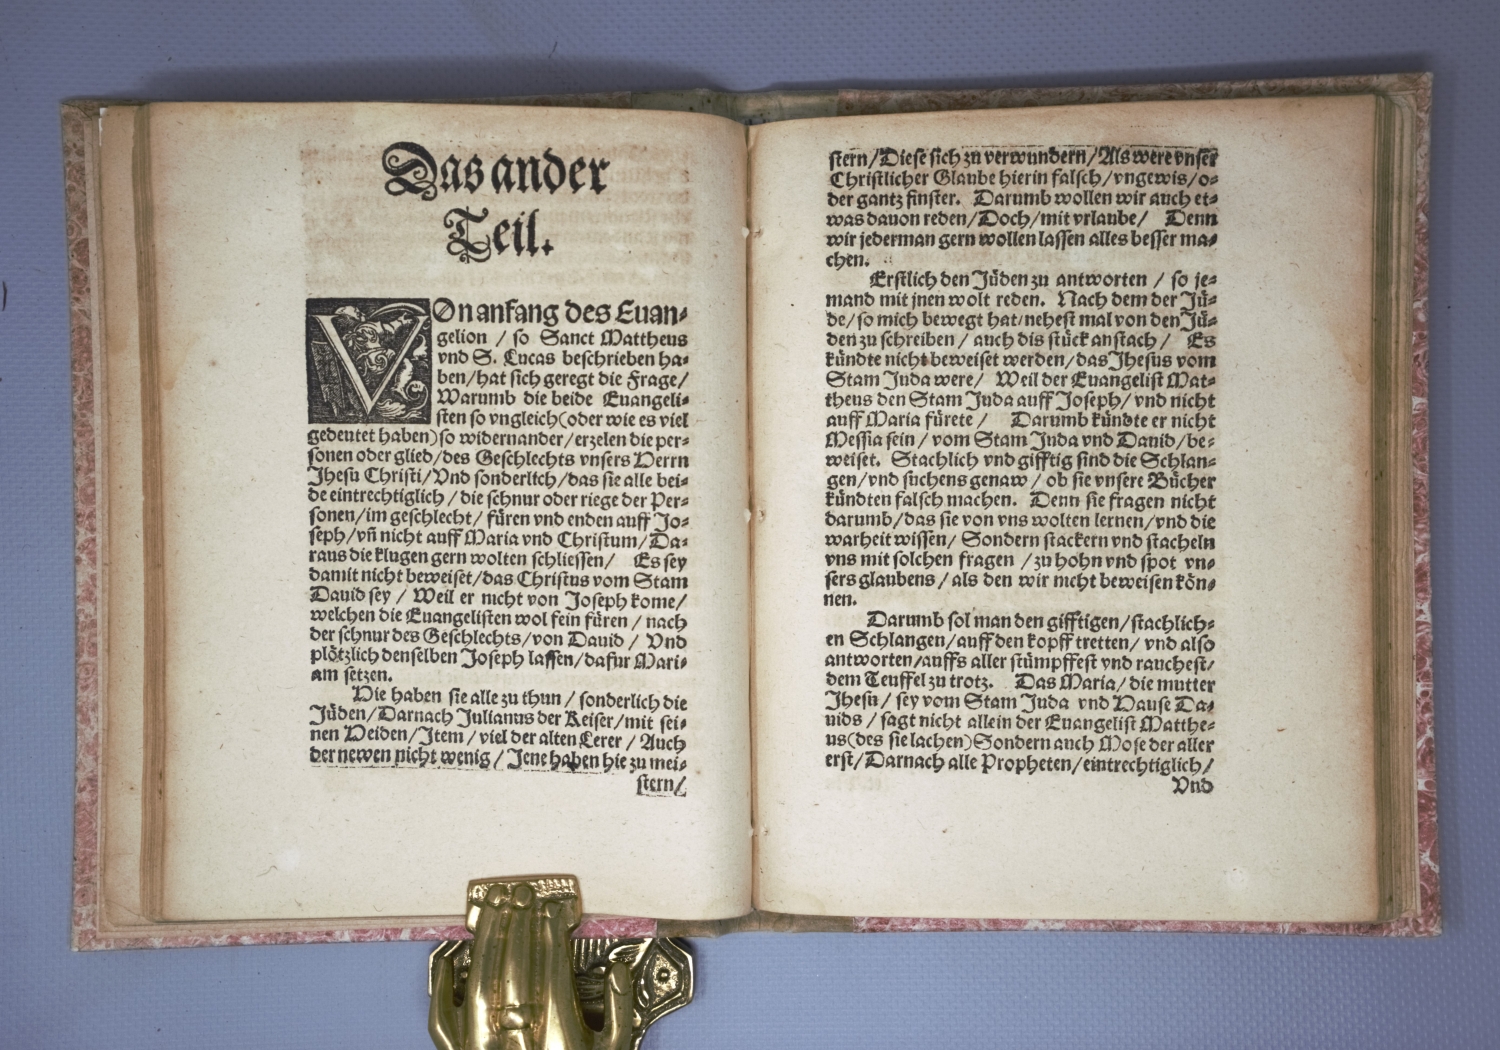 Das ander
Teil.
VOn anfang des Euan⸗
gelion / so Sanct Mattheus
vnd S. Lucas beschrieben ha⸗
ben/hat sich geregt die Frage/
Warumb die beide Euangeli⸗
sten so vngleich(oder wie es viel
gedeutet haben)so widernander/erzelen die per⸗
sonen oder glied/des Geschlechts vnsers Herrn
Jhesu Christi/Vnd sonderltch/das sie alle bei⸗
de eintrechtiglich / die schnur oder riege der Per⸗
sonen/im geschlecht/ füren vnd enden auff Jo⸗
seph/vñ nicht auff Maria vnd Christum/Da⸗
raus die klugen gern wolten schliessen/ Es sey
damit nicht beweiset/das Christus vom Stam
Dauid sey / Weil er nicht von Joseph kome/
welchen die Euangelisten wol fein füren / nach
der schnur des Geschlechts/von Dauid / Vnd
plötzlich denselben Joseph lassen/dafur Mari⸗
am setzen.
Hie haben sie alle zu thun / sonderlich die
Jüden/Darnach Julianus der Keiser/mit sei⸗
nen Heiden/Item / viel der alten Lerer / Auch
der newen nicht wenig / Jene haben hie zu mei⸗
stern/
stern/Diese sich zu verwundern/Als were vnser
Christlicher Glaube hierin falsch/vngewis/o⸗
der gantz finster. Darumb wollen wir auch et⸗
was dauon reden/Doch/mit vrlaube/ Denn
wir jederman gern wollen lassen alles besser ma⸗
chen.
Erstlich den Jüden zu antworten / so je⸗
mand mit jnen wolt reden. Nach dem der Jü⸗
de/so mich bewegt hat/nehest mal von den Jü⸗
den zu schreiben / auch dis stück anstach/ Es
kündte nicht beweiset werden/das Jhesus vom
Stam Juda were/ Weil der Euangelist Mat⸗
theus den Stam Juda auff Joseph/vnd nicht
auff Maria fürete / Darumb kündte er nicht
Messia sein / vom Stam Juda vnd Dauid/be⸗
weiset. Stachlich vnd gifftig sind die Schlan⸗
gen/vnd suchens genaw / ob sie vnsere Bücher
kündten falsch machen. Denn sie fragen nicht
darumb/das sie von vns wolten lernen/vnd die
warheit wissen/ Sondern stackern vnd stacheln
vns mit solchen fragen /zu hohn vnd spot vn⸗
sers glaubens / als den wir nicht beweisen kön⸗
nen.
Darumb sol man den gifftigen/stachlich⸗
en Schlangen/auff den kopff tretten/ vnd also
antworten/auffs aller stümpffest vnd rauchest/
dem Teuffel zu trotz. Das Maria/die mutter
Jhesu / sey vom Stam Juda vnd Hause Da⸗
uids / sagt nicht allein der Euangelist Matthe⸗
us(des sie lachen)Sondern auch Mose der aller
erst/Darnach alle Propheten/eintrechtiglich/
Vnd